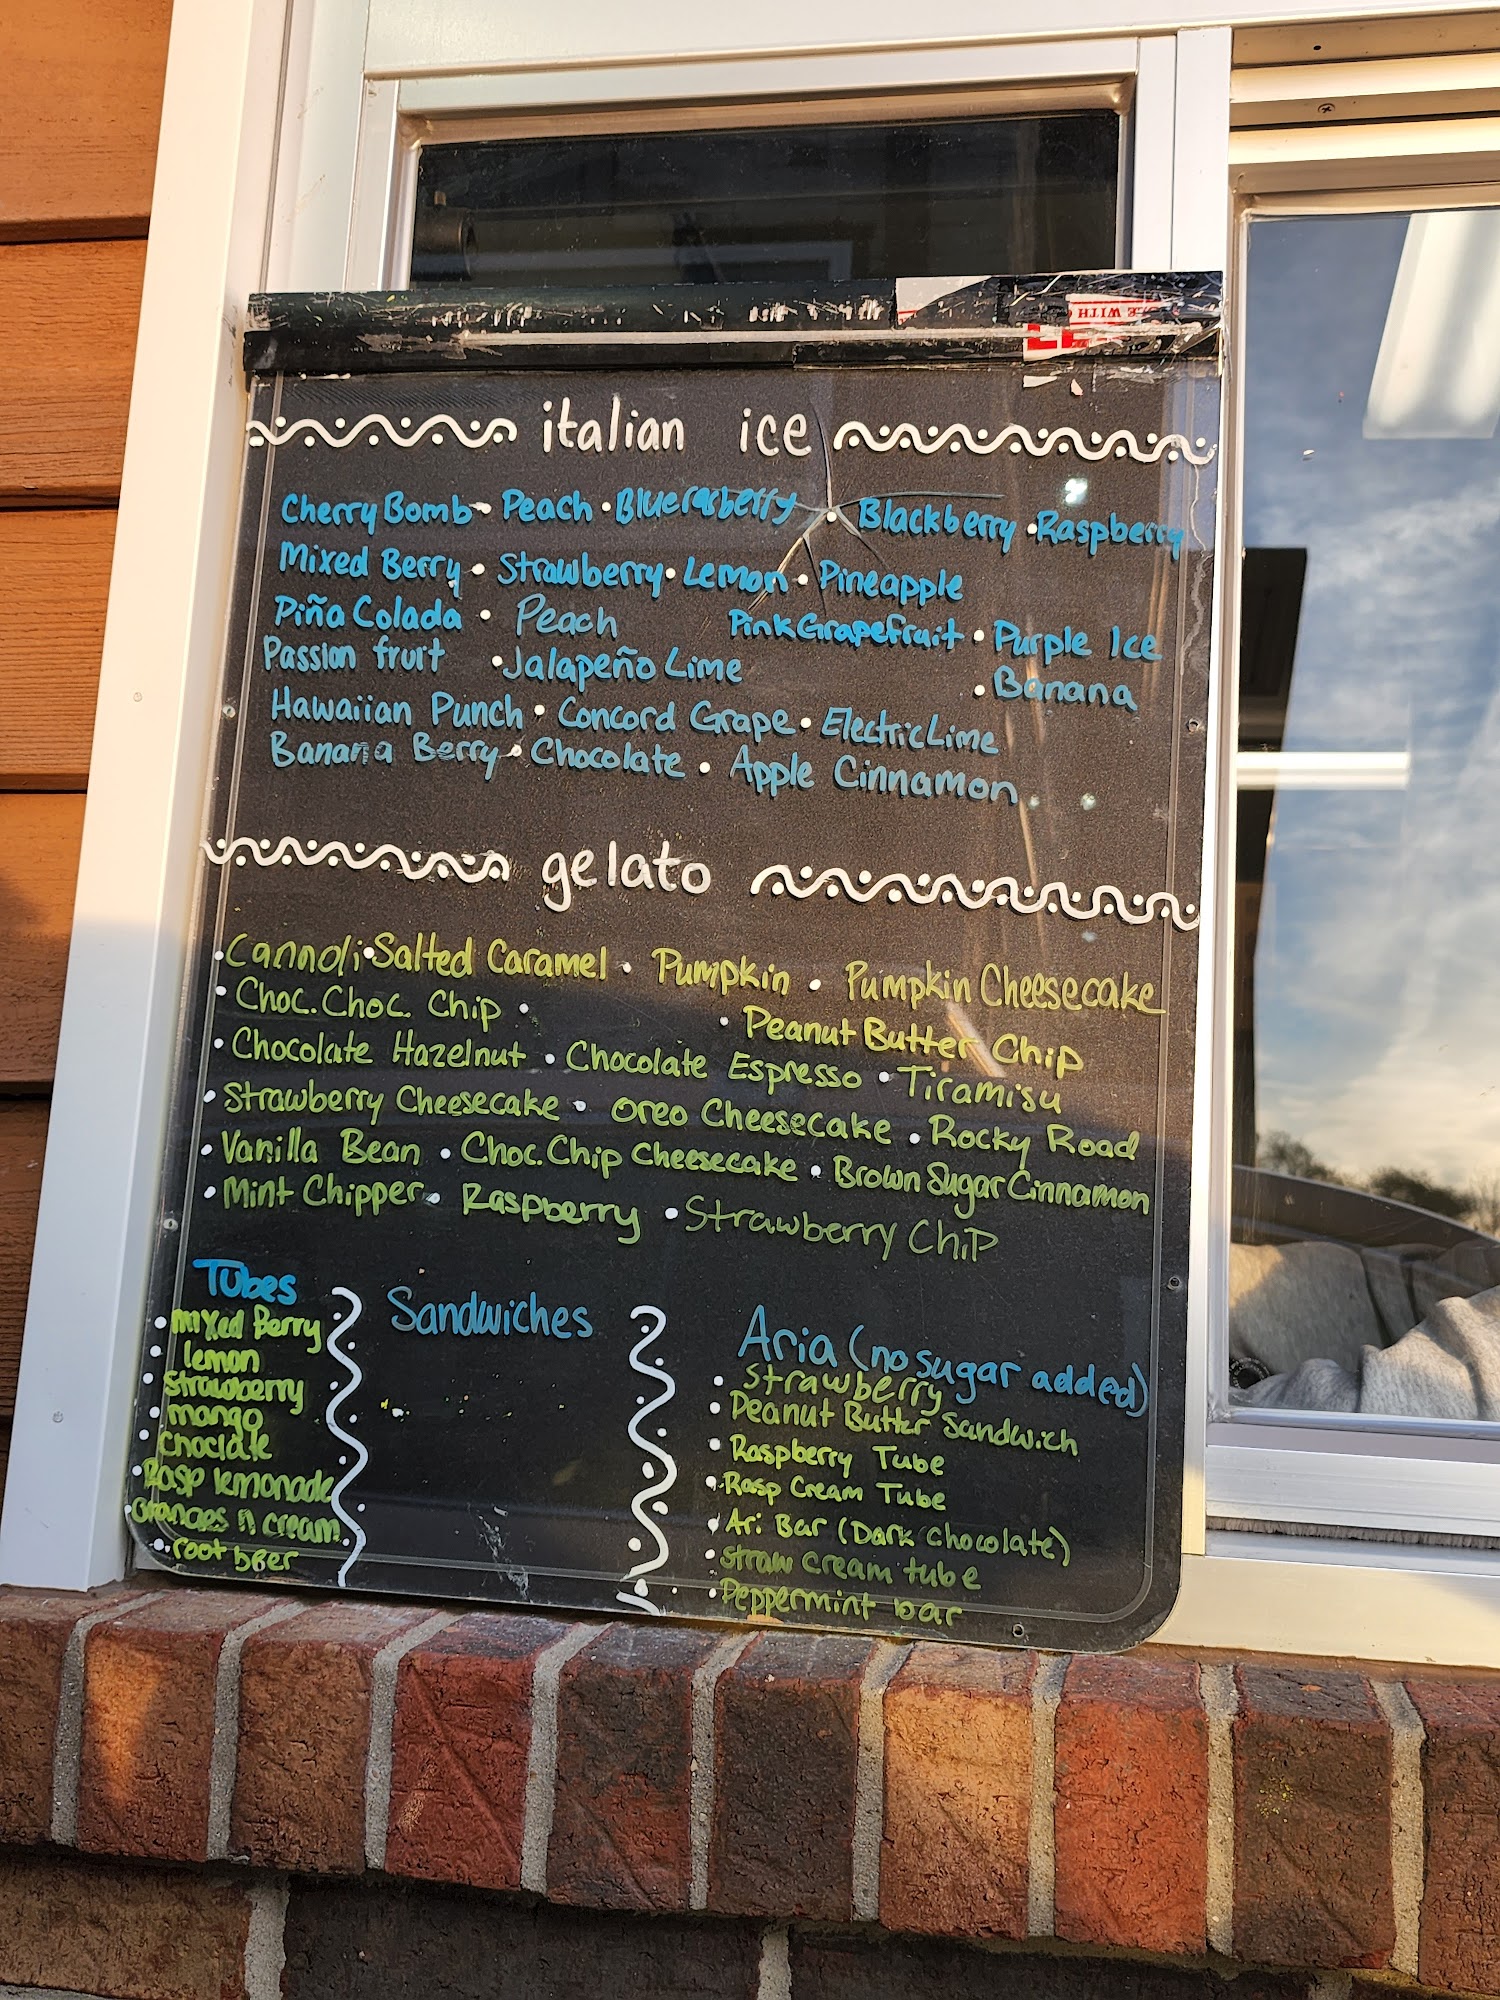 E WITH
italian ice
Cherry Bomb • Peach • Bluerasberry • Blackberry • Raspberry
Mixed Berry • Strawberry • Lemon • Pineapple
Piña Colada • Peach Pink Grapefruit • Purple Ice
Passion fruit • Jalapeño Lime • Banana
Hawaiian Punch • Concord Grape • Electric Lime
Banana Berry • Chocolate • Apple Cinnamon
gelato
• Cannoli • Salted Caramel • Pumpkin • Pumpkin Cheesecake
• Choc. Choc. Chip • • Peanut Butter Chip
• Chocolate Hazelnut • Chocolate Espresso • Tiramisu
• Strawberry Cheesecake • Oreo Cheesecake • Rocky Road
• Vanilla Bean • Choc. Chip Cheesecake • Brown Sugar Cinnamon
• Mint Chipper • Raspberry • Strawberry Chip
Tubes
• Mixed Berry
• lemon
• strawberry
• mango
• choclate
• Rasp lemonade
• oranges n cream
• root beer
Sandwiches
Aria (no sugar added)
• Strawberry
• Peanut Butter Sandwich
• Raspberry Tube
• Rasp Cream Tube
• Ari Bar (Dark chocolate)
• straw cream tube
• Peppermint bar